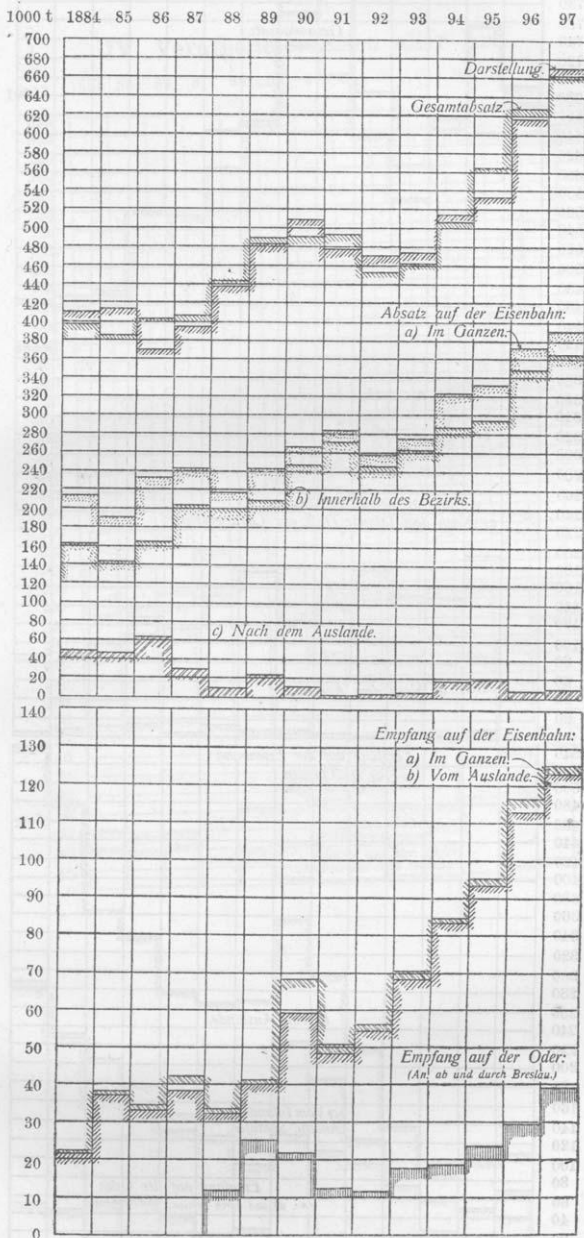 1000 t 1884 85 86 87 88 89 90 91 92 93 94 95 96 97
700
680
660
640
620
600
580
560
540
520
500
480
460
440
420
400
380
360
340
320
300
280
260
240
220
200
180
160
140
120
100
80
60
40
20
0
Darstellung.
Gesamtabsatz.
Absatz auf der Eisenbahn:
a) Im Ganzen.
b) Innerhalb des Bezirks.
c) Nach dem Auslande.
140
130
120
110
100
90
80
70
60
50
40
30
20
10
0
Empfang auf der Eisenbahn:
a) Im Ganzen.
b) Vom Auslande.
Empfang auf der Oder:
(An. ab und durch Breslau.)